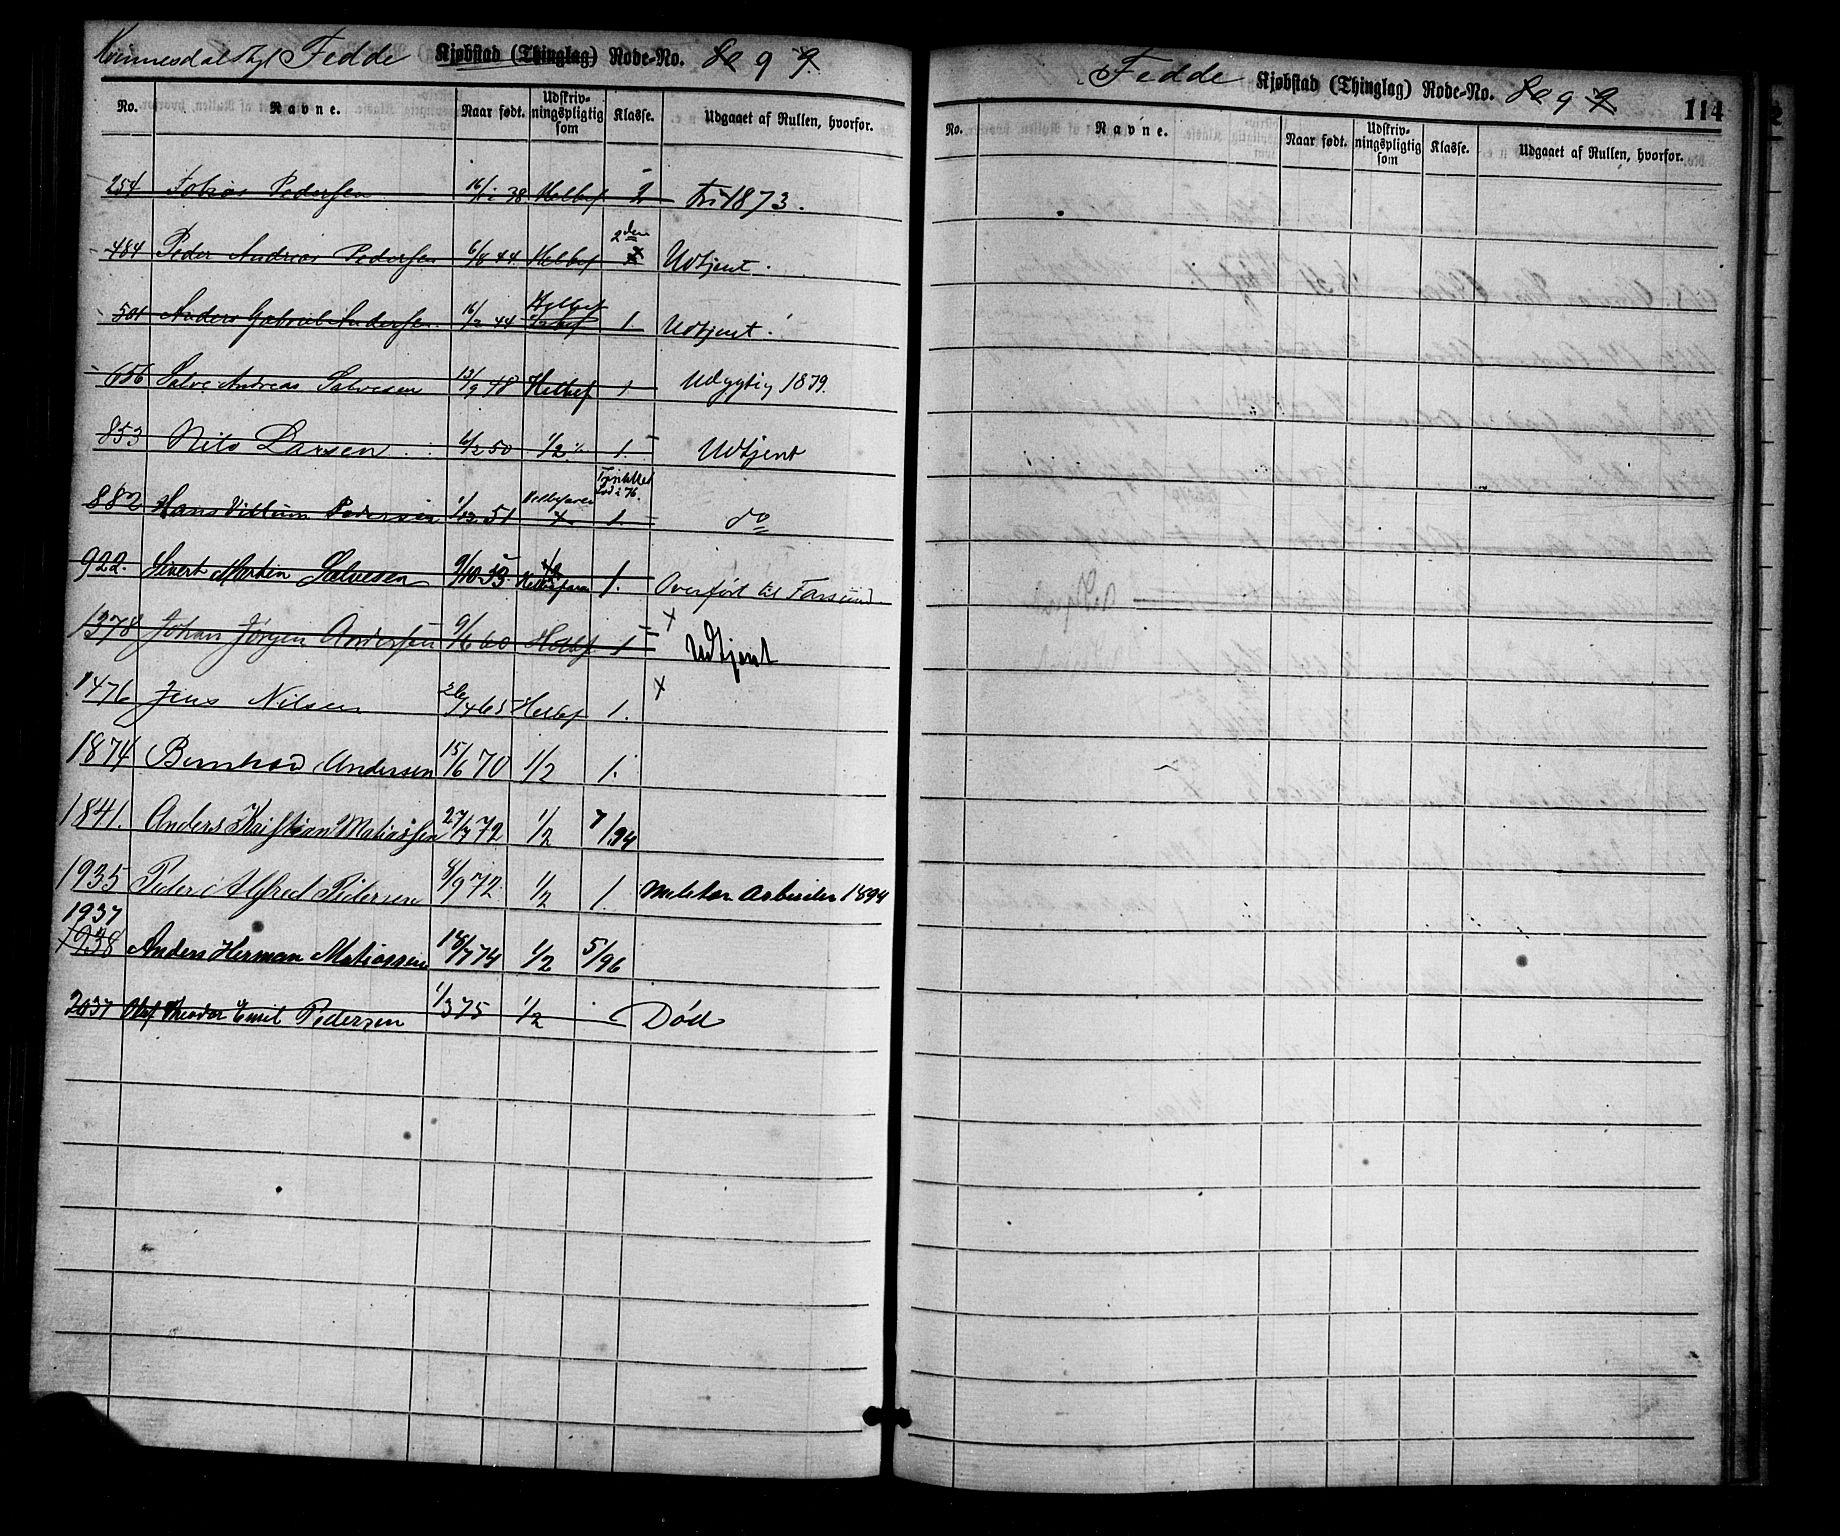 Fedde Kjøbstad (Thinglag) Rode-No. 9 9.
No. Navne. Naar født. Udskrivningspligtig som Klasse. Udgaaet af Rullen, hvorfor.
254 Tobias Pedersen 38 Helbef 2 fri 1873.
484 Peder Andreas Pedersen 6/8 44 Helbef 2den Udtjent.
501 Anders Gabriel Andersen 16/2 44 Helbef 1. Udtjent.
656 Salve Andreas Salvesen 13/9 48 Helbef 1 Udygtig 1879.
853 Nils Larsen 6/2 50 1/2 1. Udtjent
882 Hans Villum Pedersen 51 Helbefaren 1. do
922. Sivert Martin Salvesen 9/10 53 Helbefaren 1. Overført til Farsund
1378 Johan Jørgen Andersen 9/6 60 Helbf 1 x Udtjent
1476 Jens Nilsen 26/4 65 Helbef 1. x
1874 Bernhard Andersen 15/6 70 1/2 1.
1841. Anders Kristian Matiassen 27/7 72 1/2 7/94
1935 Peder Alfred Pedersen 6/9 72 1/2 1. Militær Arbeider 1894
1937
1938 Anders Herman Matiassen 18/7 74 1/2 5/96
2037 Olaf Theodor Emil Pedersen 1/3 75 1/2 Død
Fedde Kjøbstad (Thinglag) Rode-No. 9 9
114
No. Navne. Naar født. Udskrivningspligtig som Klasse. Udgaaet af Rullen, hvorfor.